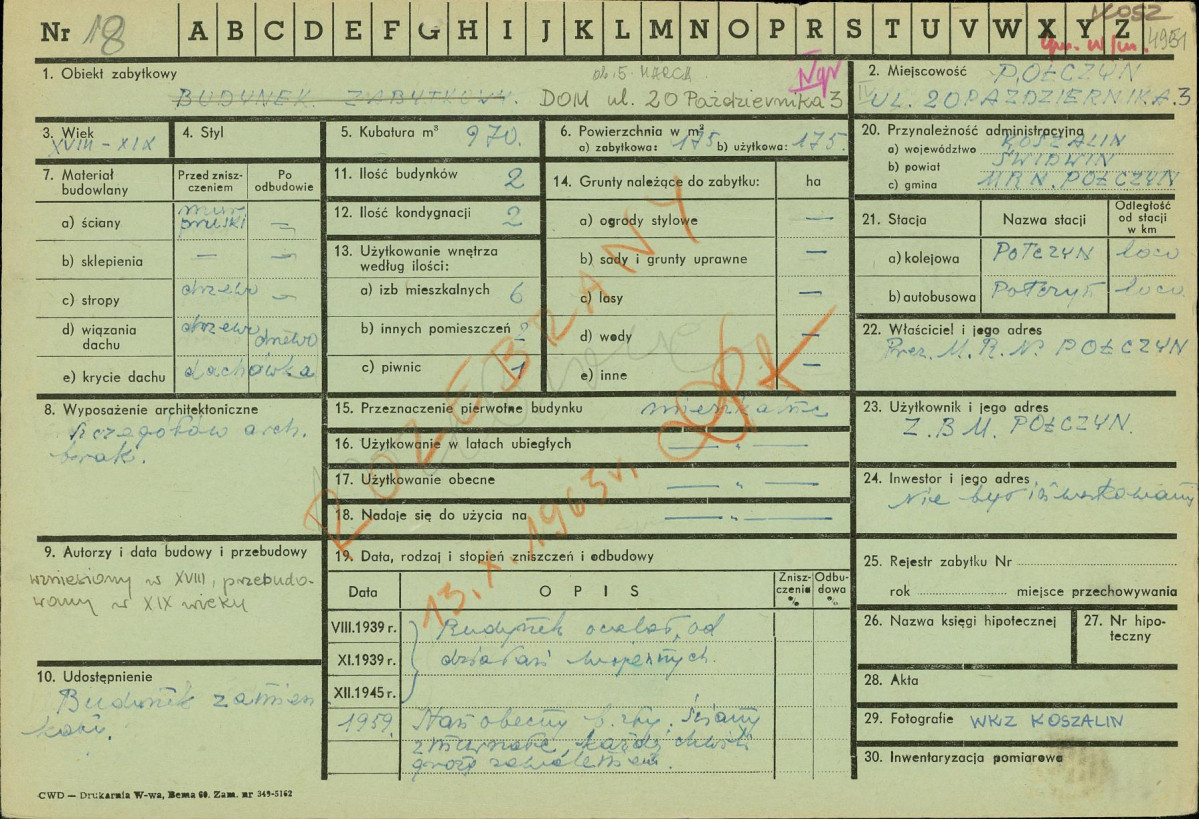 Nr 18 A B C D E F G H I J K L M N O P R S T U V W X Y Z
KOSZ
4951
1. Obiekt zabytkowy
ob. 5. MARCA
BUDYNEK ZABYTKOWY. DOM ul. 20 Października 3
2. Miejscowość POŁCZYN
UL. 20 PAŹDZIERNIKA. 3
3. Wiek
XVIII - XIX
4. Styl
5. Kubatura m³ 970.
6. Powierzchnia w m²
a) zabytkowa: 175 b) użytkowa: 175.
20. Przynależność administracyjna
a) województwo KOSZALIN
b) powiat ŚWIDWIN
c) gmina MRN. POŁCZYN
7. Materiał budowlany
Przed zniszczeniem
Po odbudowie
a) ściany mur pruski —
b) sklepienia — —
c) stropy drzewo —
d) wiązania dachu drzewo drzewo
e) krycie dachu dachówka
11. Ilość budynków 2
12. Ilość kondygnacji 2
13. Użytkowanie wnętrza według ilości:
a) izb mieszkalnych 6
b) innych pomieszczeń 2
c) piwnic 1
14. Grunty należące do zabytku: ha
a) ogrody stylowe —
b) sady i grunty uprawne —
c) lasy —
d) wody —
e) inne —
21. Stacja
Nazwa stacji
Odległość od stacji w km
a) kolejowa POŁCZYN loco
b) autobusowa Połczyn loco
22. Właściciel i jego adres
Prez. M.R.N. POŁCZYN
8. Wyposażenie architektoniczne
Szczegółów arch.
brak.
15. Przeznaczenie pierwotne budynku mieszkalne
16. Użytkowanie w latach ubiegłych — " —
17. Użytkowanie obecne — " —
18. Nadaje się do użycia na — " —
23. Użytkownik i jego adres
Z.B.M. POŁCZYN.
24. Inwestor i jego adres
Nie był inwestowany
ROZEBRANY
13.X.1963 r.
9. Autorzy i data budowy i przebudowy
wzniesiony w XVIII, przebudo-
wany w XIX wieku
10. Udostępnienie
Budynek zamiesz
kały.
19. Data, rodzaj i stopień zniszczeń i odbudowy
Data
OPIS
Zniszczenia %
Odbudowa %
VIII.1939 r.
XI.1939 r.
XII.1945 r.
Budynek ocalał od
działań wojennych.
1959. Stan obecny b. zły. Ściany
zmurszałe, każdej chwili
grożą zawaleniem.
25. Rejestr zabytku Nr
rok miejsce przechowywania
26. Nazwa księgi hipotecznej
27. Nr hipoteczny
28. Akta
29. Fotografie WKZ KOSZALIN
30. Inwentaryzacja pomiarowa
CWD — Drukarnia W-wa, Bema 60. Zam. nr 349-5162